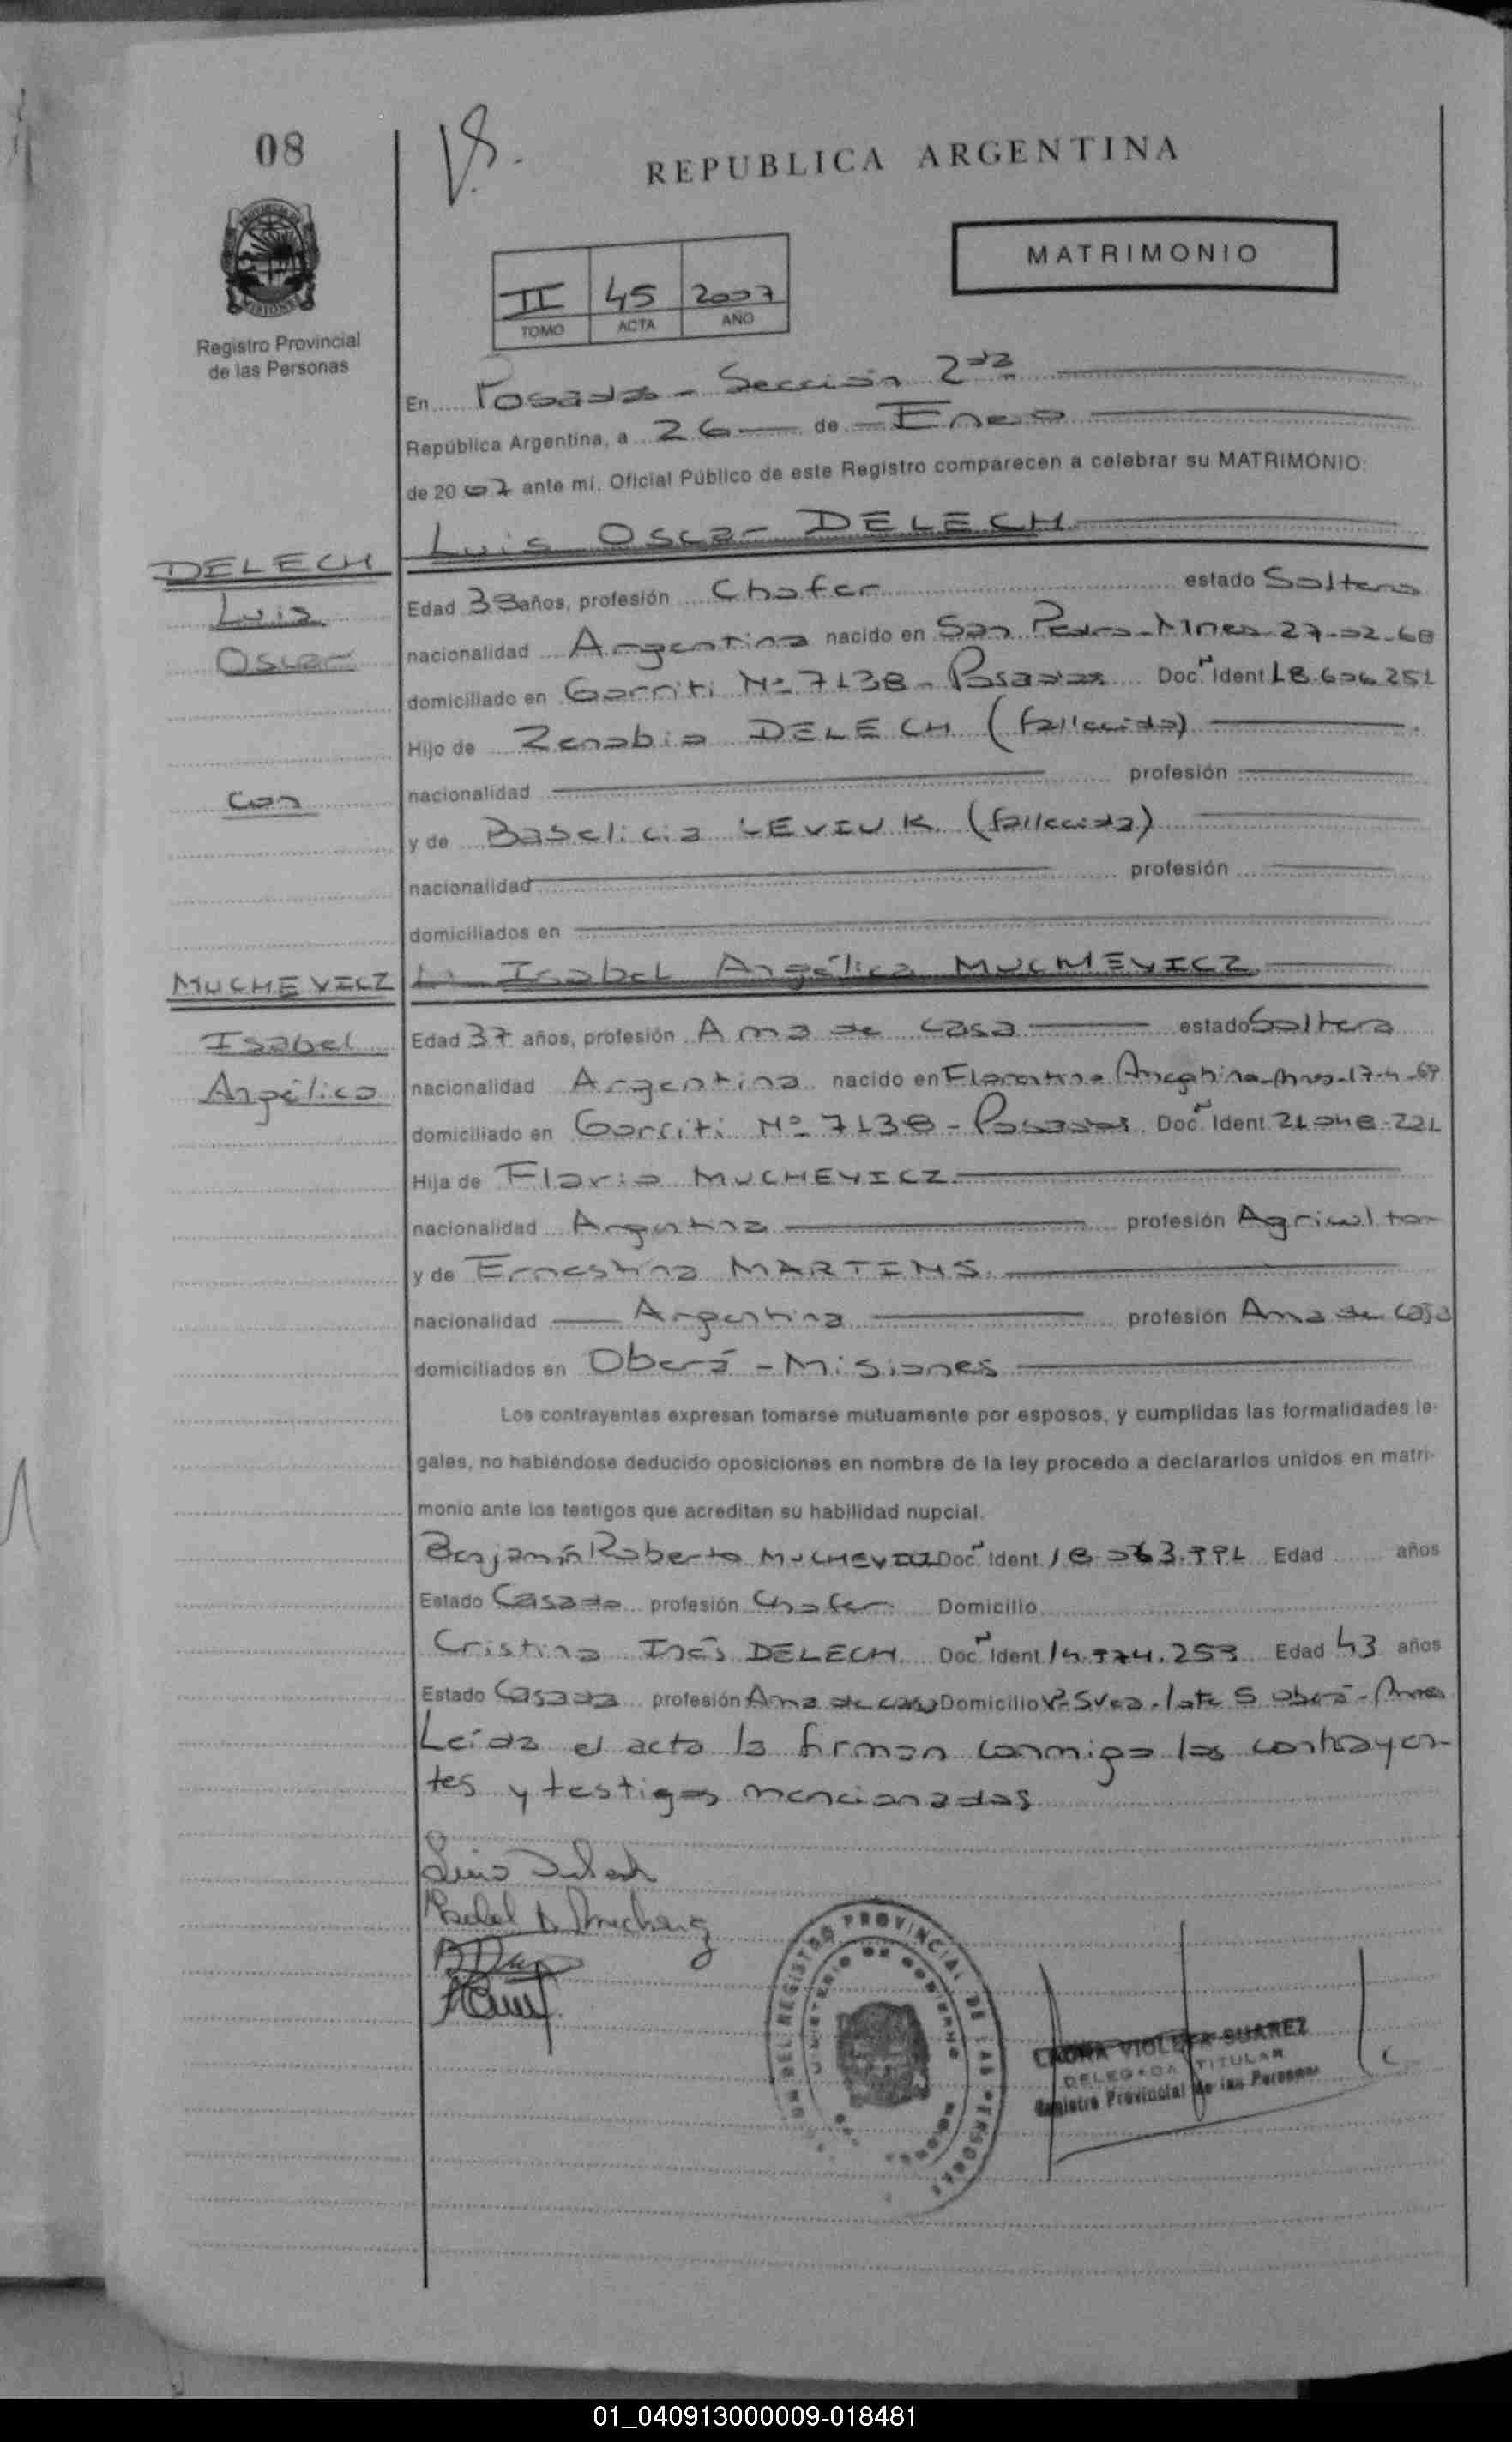 08
V.S.
REPUBLICA ARGENTINA
MATRIMONIO
II 45 2007
TOMO ACTA AÑO
Registro Provincial
de las Personas
En Posadas - Sección 2da
República Argentina, a 26 de Enero
de 2007 ante mí, Oficial Público de este Registro comparecen a celebrar su MATRIMONIO:
DELECH Luis Oscar DELECH
Luis Edad 38 años, profesión Chofer estado Soltero
Oscar nacionalidad Argentina nacido en San Pedro - Mnes 27-02-68
domiciliado en Gorriti Nº 7138 - Posadas Doc. Ident 18.606.251
Hijo de Zenobio DELECH (fallecido)
con nacionalidad profesión
y de Baselicia LEVIUK (fallecida)
nacionalidad profesión
domiciliados en
MUCHEVICZ Isabel Angélica MUCHEVICZ
Isabel Edad 37 años, profesión Ama de casa estado Soltera
Angélica nacionalidad Argentina nacido en Florentino Ameghino - Mnes - 17-4-69
domiciliado en Gorriti Nº 7138 - Posadas Doc. Ident 21.048.221
Hija de Flavio MUCHEVICZ
nacionalidad Argentina profesión Agricultor
y de Ernestina MARTINS
nacionalidad Argentina profesión Ama de casa
domiciliados en Oberá - Misiones
Los contrayentes expresan tomarse mutuamente por esposos, y cumplidas las formalidades le-
gales, no habiéndose deducido oposiciones en nombre de la ley procedo a declararlos unidos en matri-
monio ante los testigos que acreditan su habilidad nupcial.
Benjamín Roberto MUCHEVICZ Doc. Ident. Edad años
Estado Casado profesión Chofer Domicilio
Cristina Inés DELECH Doc. Ident 14.974.253 Edad 43 años
Estado Casada profesión Ama de casa Domicilio lote 5 Oberá - Mnes
Leída el acta la firman conmigo los contrayen-
tes y testigos mencionados
Luis Delech
Isabel A Muchevicz
REGISTRO PROVINCIAL DE LAS PERSONAS
MINISTERIO DE GOBIERNO
LAURA VIOLETA SUAREZ
DELEGADA TITULAR
Registro Provincial de las Personas
01_040913000009-018481